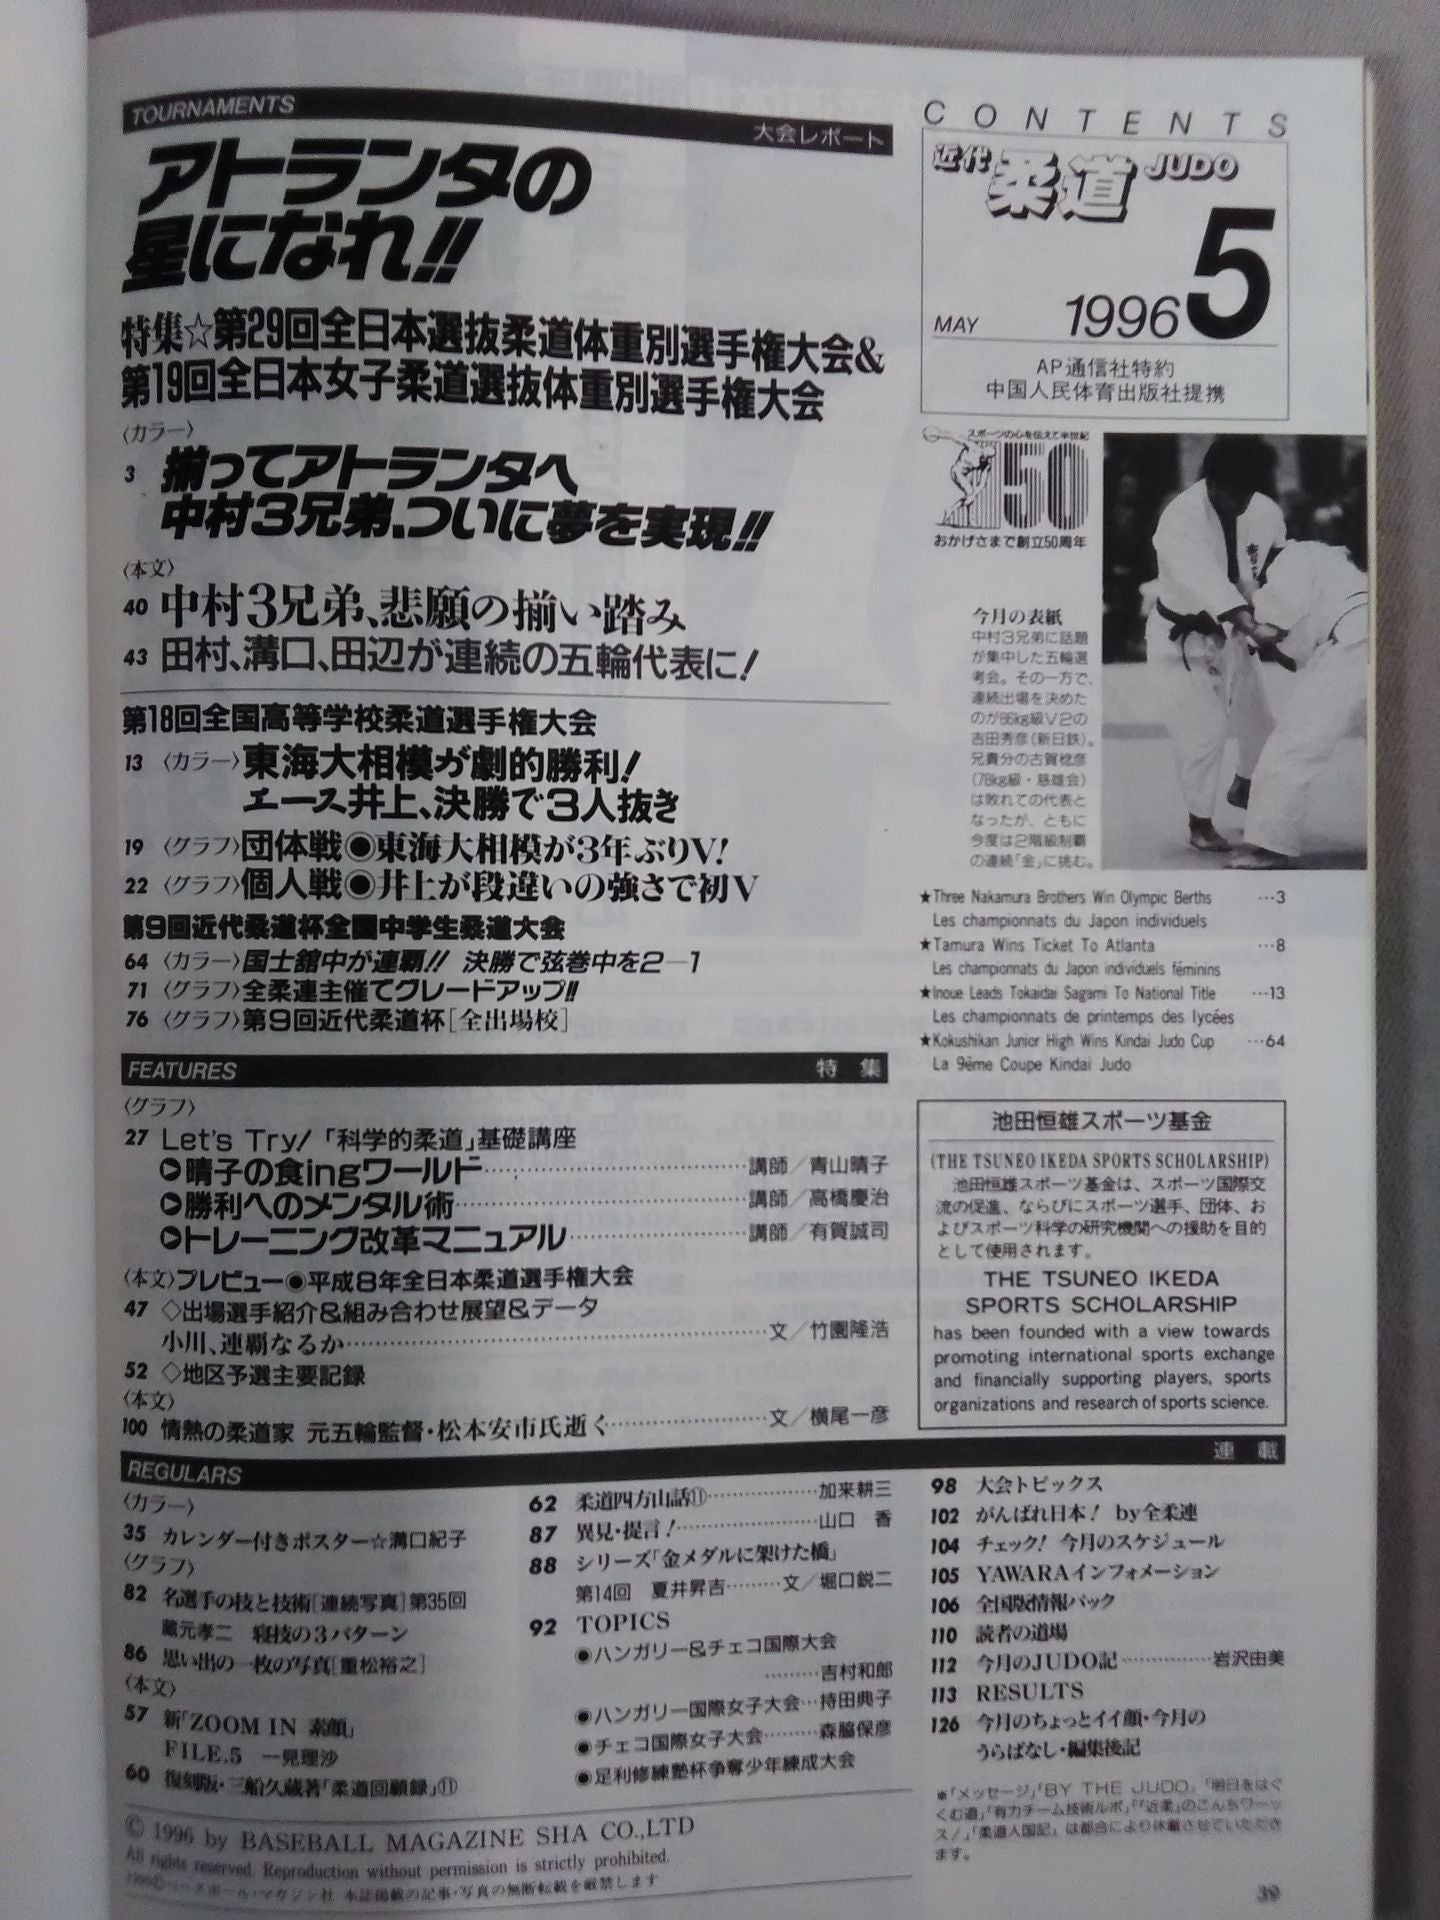 TOURNAMENTS
大会レポート
アトランタの
星になれ!!
特集☆第29回全日本選抜柔道体重別選手権大会&
第19回全日本女子柔道選抜体重別選手権大会
〈カラー〉
3 揃ってアトランタへ
中村3兄弟、ついに夢を実現!!
〈本文〉
40 中村3兄弟、悲願の揃い踏み
43 田村、溝口、田辺が連続の五輪代表に!
第18回全国高等学校柔道選手権大会
13 〈カラー〉東海大相模が劇的勝利!
エース井上、決勝で3人抜き
19 〈グラフ〉団体戦◉東海大相模が3年ぶりV!
22 〈グラフ〉個人戦◉井上が段違いの強さで初V
第9回近代柔道杯全国中学生柔道大会
64 〈カラー〉国士舘中が連覇!! 決勝で弦巻中を2—1
71 〈グラフ〉全柔連主催でグレードアップ!!
76 〈グラフ〉第9回近代柔道杯[全出場校]
CONTENTS
近代柔道 JUDO
MAY 1996 5
AP通信社特約
中国人民体育出版社提携
スポーツの心を伝えて半世紀
50
おかげさまで創立50周年
今月の表紙
中村3兄弟に話題
が集中した五輪選
考会。その一方で、
連続出場を決めた
のが86kg級V2の
吉田秀彦(新日鉄)。
兄貴分の古賀稔彦
(78kg級・慈雄会)
は敗れての代表と
なったが、ともに
今度は2階級制覇
の連続「金」に挑む。
★Three Nakamura Brothers Win Olympic Berths …3
Les championnats du Japon individuels
★Tamura Wins Ticket To Atlanta …8
Les championnats du Japon individuels féminins
★Inoue Leads Tokaidai Sagami To National Title …13
Les championnats de printemps des lycées
★Kokushikan Junior High Wins Kindai Judo Cup …64
La 9ème Coupe Kindai Judo
FEATURES
特集
〈グラフ〉
27 Let's Try!「科学的柔道」基礎講座
晴子の食ingワールド……講師/青山晴子
勝利へのメンタル術……講師/高橋慶治
トレーニング改革マニュアル……講師/有賀誠司
〈本文〉プレビュー◉平成8年全日本柔道選手権大会
47 ◇出場選手紹介&組み合わせ展望&データ
小川、連覇なるか……文/竹園隆浩
52 ◇地区予選主要記録
〈本文〉
100 情熱の柔道家 元五輪監督・松本安市氏逝く……文/横尾一彦
池田恒雄スポーツ基金
(THE TSUNEO IKEDA SPORTS SCHOLARSHIP)
池田恒雄スポーツ基金は、スポーツ国際交
流の促進、ならびにスポーツ選手、団体、お
よびスポーツ科学の研究機関への援助を目的
として使用されます。
THE TSUNEO IKEDA
SPORTS SCHOLARSHIP
has been founded with a view towards
promoting international sports exchange
and financially supporting players, sports
organizations and research of sports science.
REGULARS
連載
〈カラー〉
35 カレンダー付きポスター☆溝口紀子
〈グラフ〉
82 名選手の技と技術[連続写真]第35回
蔵元孝二 寝技の3パターン
86 思い出の一枚の写真[重松裕之]
〈本文〉
57 新「ZOOM IN 素顔」
FILE.5 一見理沙
60 復刻版・三船久蔵著「柔道回顧録」⑪
62 柔道四方山話⑪……加来耕三
87 異見・提言!……山口 香
88 シリーズ「金メダルに架けた橋」
第14回 夏井昇吉……文/堀口鋭二
92 TOPICS
◉ハンガリー&チェコ国際大会
……吉村和郎
◉ハンガリー国際女子大会…持田典子
◉チェコ国際女子大会……森脇保彦
◉足利修練塾杯争奪少年練成大会
98 大会トピックス
102 がんばれ日本! by全柔連
104 チェック! 今月のスケジュール
105 YAWARAインフォメーション
106 全国版情報パック
110 読者の道場
112 今月のJUDO記……岩沢由美
113 RESULTS
126 今月のちょっとイイ顔・今月の
うらばなし・編集後記
※「メッセージ」「BY THE JUDO」「明日をはぐ
くむ道」「有力チーム技術ルポ」「『近柔』のこんちワーッ
ス!」「柔道人国記」は都合により休載させていただき
ます。
© 1996 by BASEBALL MAGAZINE SHA CO.,LTD
All rights reserved. Reproduction without permission is strictly prohibited.
1996©ベースボール・マガジン社 本誌掲載の記事・写真の無断転載を厳禁します
39